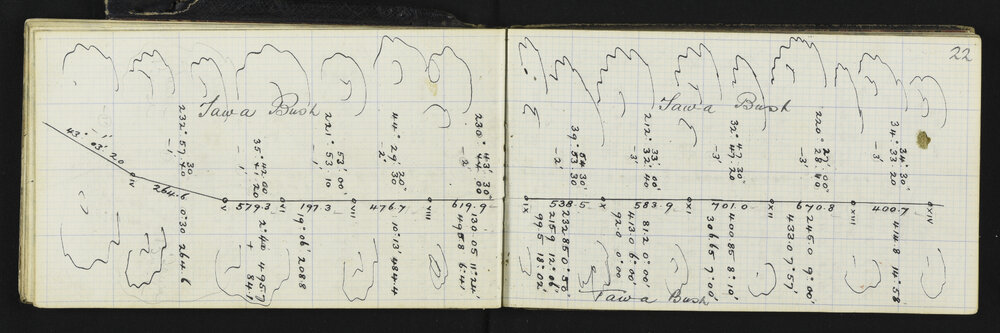 22
Tawa Bush
Tawa Bush
43° 03' 20
232° 57' 40
30
-1'
35° 41' 20
42 00
-1'
221° 53' 10
53' 00"
-1'
44° 29' 30
20"
-2'
230° 44' 00
43' 30"
-2'
39° 53' 30
54' 30
212° 32' 40
33' 00"
-2'
32° 47' 20
47' 30
-3'
220° 28' 40
27' 00"
-3'
34° 33' 20
34' 30
-3'
IV
264.6
V
579.3
VI
197.3
VII
476.7
VIII
619.9
IX
538.5
X
583.9
XI
701.0
XII
670.8
XIII
400.7
XIV
0° 30 264.6
19° 06' 2088
10° 13' 484.4
130.05 11° 24'
495.8 6° 14'
232.85 0° 52'
215.9 12° 06'
99.5 18° 02'
81.2 0° 00'
413.0 6° 00'
92.0 0° 00'
400.85 8° 10'
306.65 7° 00'
245.0 9° 00'
433.0 7° 57'
414.8 14° 58
Tawa Bush